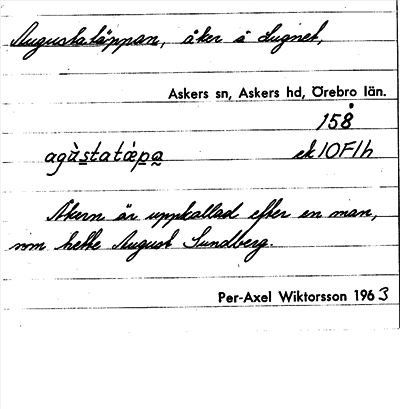 Augustatäppan, åker å Lugnet,
Askers sn, Askers hd, Örebro län.
158
agùstatǽpa ek 10F1h
Åkern är uppkallad efter en man,
som hette August Sundberg.
Per-Axel Wiktorsson 1963